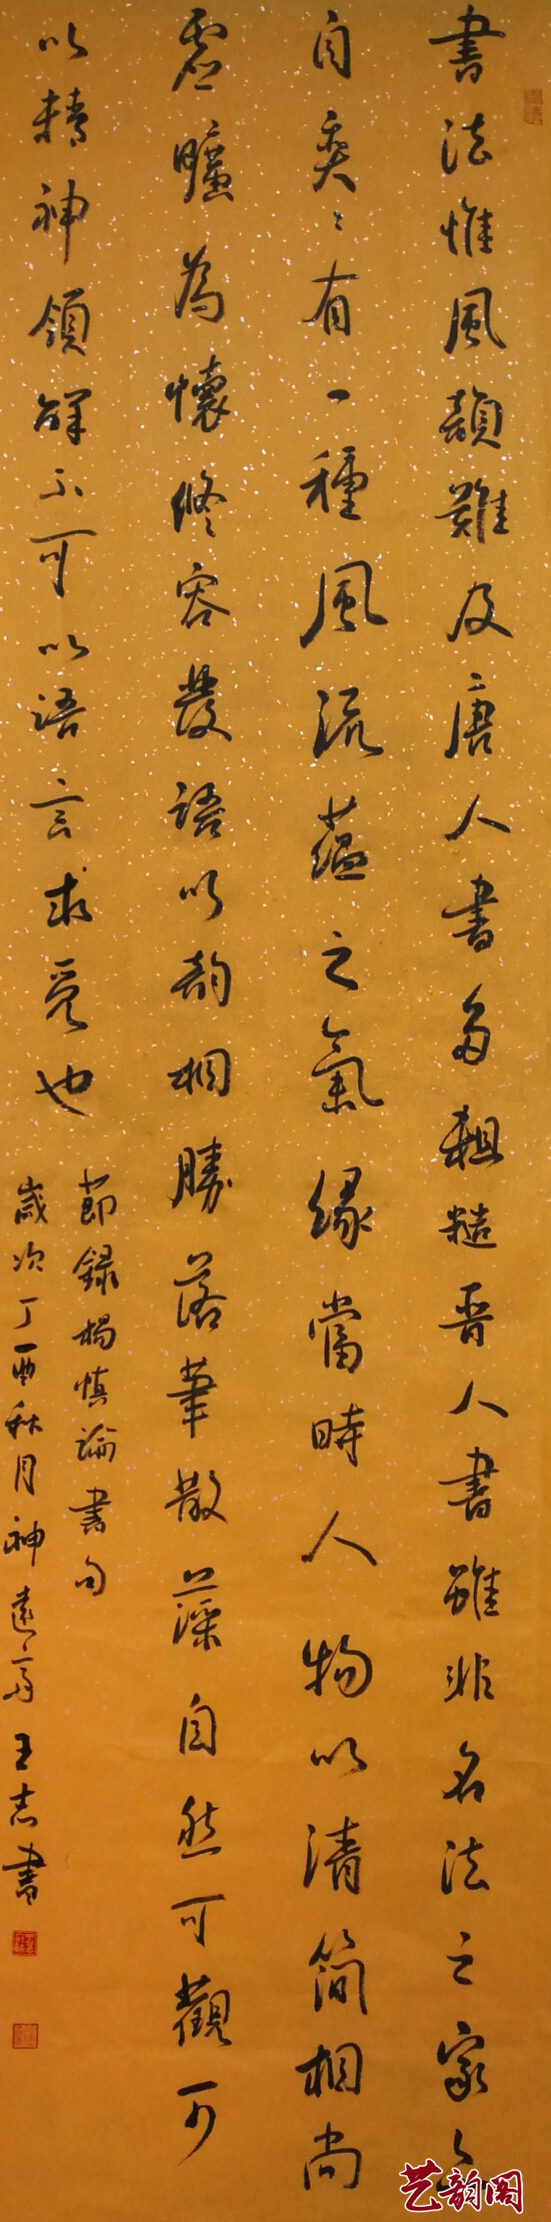 書法惟風韻難及唐人書多粗糙晋人書雖非名法之家亦
自奕々有一種風流蘊之氣緣當時人物以清簡相尚
虛曠為懷修容發語以韵相勝落華散藻自然可觀可
以精神領解不可以語言求覓也
節録楊慎論書句
歲次丁酉秋月神遠斋王志書
艺韵阁